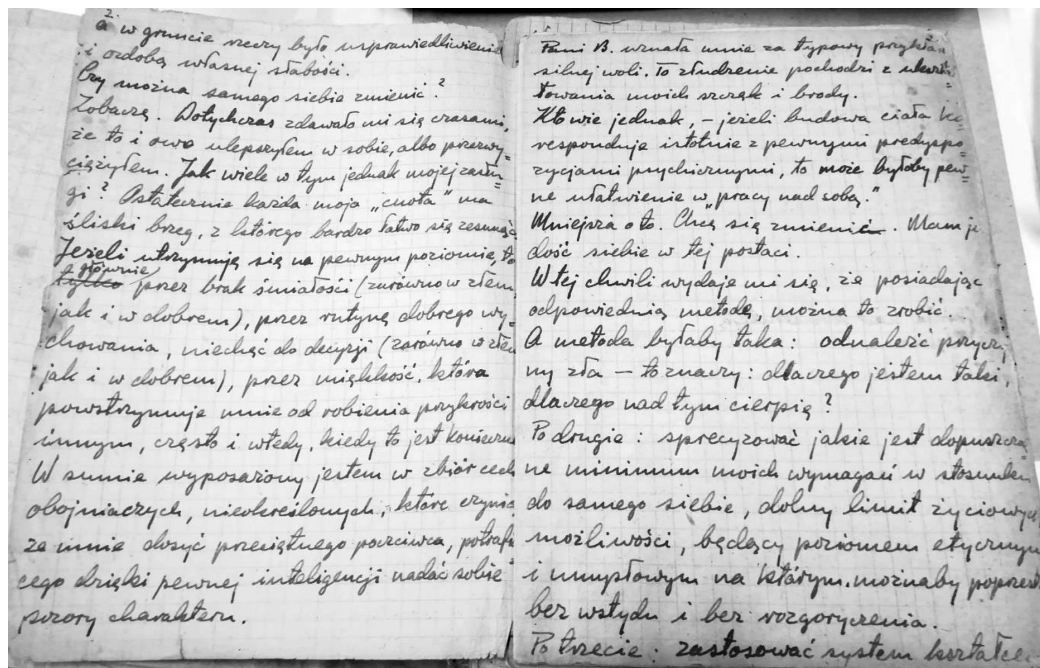 2.
a w gruncie rzeczy było usprawiedliwienie
i ozdobą własnej słabości.
Czy można samego siebie zmienić?
Zobaczę. Dotychczas zdawało mi się czasami,
że to i owo ulepszyłem w sobie, albo przezwy=
ciężyłem. Jak wiele w tym jednak mojej zasłu=
gi? Ostatecznie każda moja „cnota" ma
śliski brzeg, z którego bardzo łatwo się zesunąć
Jeżeli utrzymuję się na pewnym poziomie, to
głównie
tylko przez brak śmiałości (zarówno w złem,
jak i w dobrem), przez rutynę dobrego wy=
chowania, niechęć do decyzji (zarówno w złem
jak i w dobrem), przez miękkość, która
powstrzymuje mnie od robienia przykrości
innym, często i wtedy, kiedy to jest konieczne
W sumie wyposażony jestem w zbiór cech
obojniaczych, nieokreślonych, które czynią
ze mnie dosyć przeciętnego poczciwca, potrafią
cego dzięki pewnej inteligencji nadać sobie
pozory charakteru.
Pani B. uznała mnie za typowy przykład
silnej woli. To złudzenie pochodzi z ukształ=
towania moich szczęk i brody.
Kto wie jednak, – jeżeli budowa ciała ko=
responduje istotnie z pewnymi predyspo=
zycjami psychicznymi, to może byłoby pew=
ne ułatwienie w „pracy nad sobą."
Mniejsza o to. Chcę się zmienić. Mam już
dość siebie w tej postaci.
W tej chwili wydaje mi się, że posiadając
odpowiednią metodę, można to zrobić.
A metoda byłaby taka: odnaleźć przyczy
ny zła – to znaczy: dlaczego jestem taki,
dlaczego nad tym cierpię?
Po drugie: sprecyzować jakie jest dopuszczal
ne minimum moich wymagań w stosunku
do samego siebie, dolny limit życiowych
możliwości, będący poziomem etycznym
i umysłowym na którym możnaby poprzestać
bez wstydu i bez rozgoryczenia.
Po trzecie: zastosować system kształce